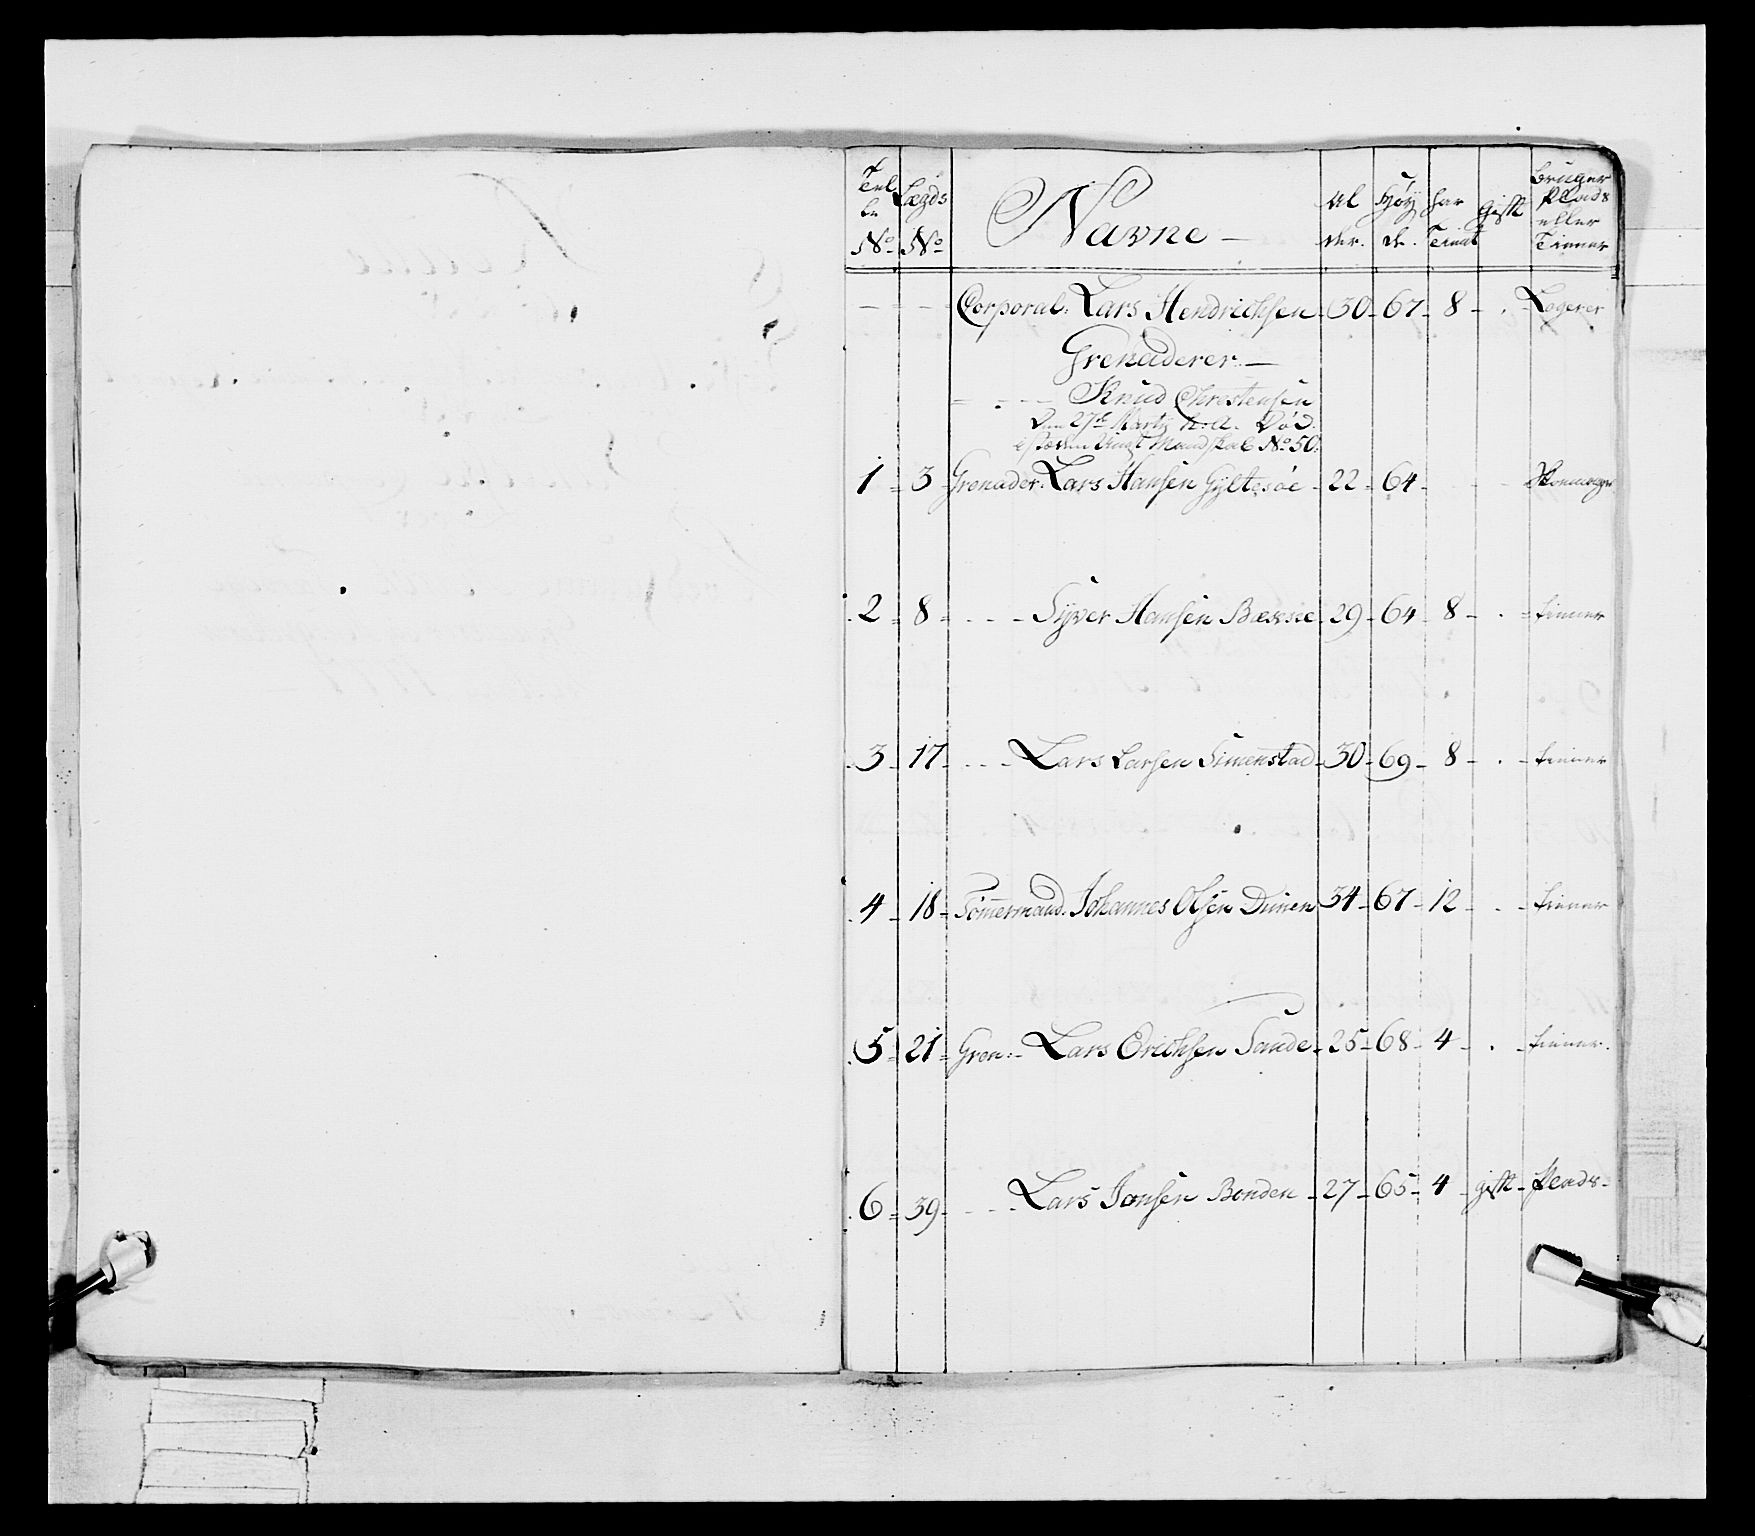 Tel Lægds Navne Al Høy har Gift bruger
le Plads
No No der. de. Tient eller
Tienner
Corporal: Lars Hendrichsen 30 67 8 Logerer
Grenaderer
Knud Christensen
Den 27de Marty h: a: Død.
No 50.
1 3 Grenader: Lars Hansen Gyltesøe 22 64
2 8 Syver Hansen Bævne 29 64 8 tienner
3 17 Lars Larsen Simenstad 30 69 8 tienner
4 18 Tømmermand. Johannes Olsen Dimen 34 67 12 tienner
5 21 Gren: Lars Erichsen Sande 25 68 4 tienner.
6 39 Lars Jonsen Bonden 27 65 4 gift Plads